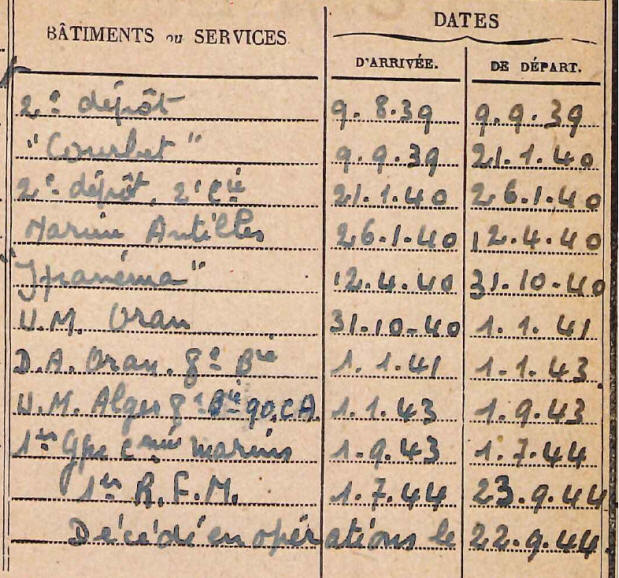 BÂTIMENTS ou SERVICES
DATES
D'ARRIVÉE. DE DÉPART.
2e dépôt 9.8.39 9.9.39
"Courbet" 9.9.39 21.1.40
2e dépôt, 2e Cie 21.1.40 26.1.40
Marine Antilles 26.1.40 12.4.40
"Ipanéma" 12.4.40 31.10.40
U.M. Oran 31.10.40 1.1.41
D.A. Oran. 8e Bie 1.1.41 1.1.43
U.M. Alger 8e Bie 90.CA 1.1.43 1.9.43
1er Gpe marins 1.9.43 1.7.44
1er R.F.M. 1.7.44 23.9.44
Décédé en opérations le 22.9.44